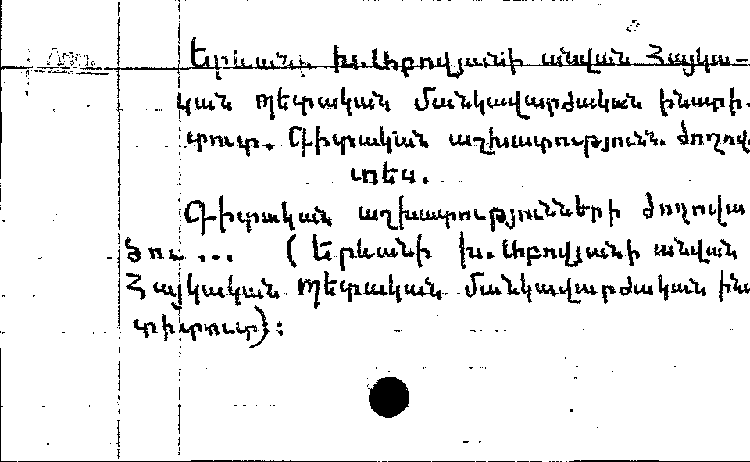 Երևանի Խ. Աբովյանի անվան Հայկա-
կան պետական մանկավարժական ինստի-
տուտ. Գիտական աշխատություն. ժողով.
տես.
Գիտական աշխատությունների ժողովա
ծու ... (Երևանի Խ. Աբովյանի անվան
Հայկական պետական մանկավարժական ինս
տիտուտ):